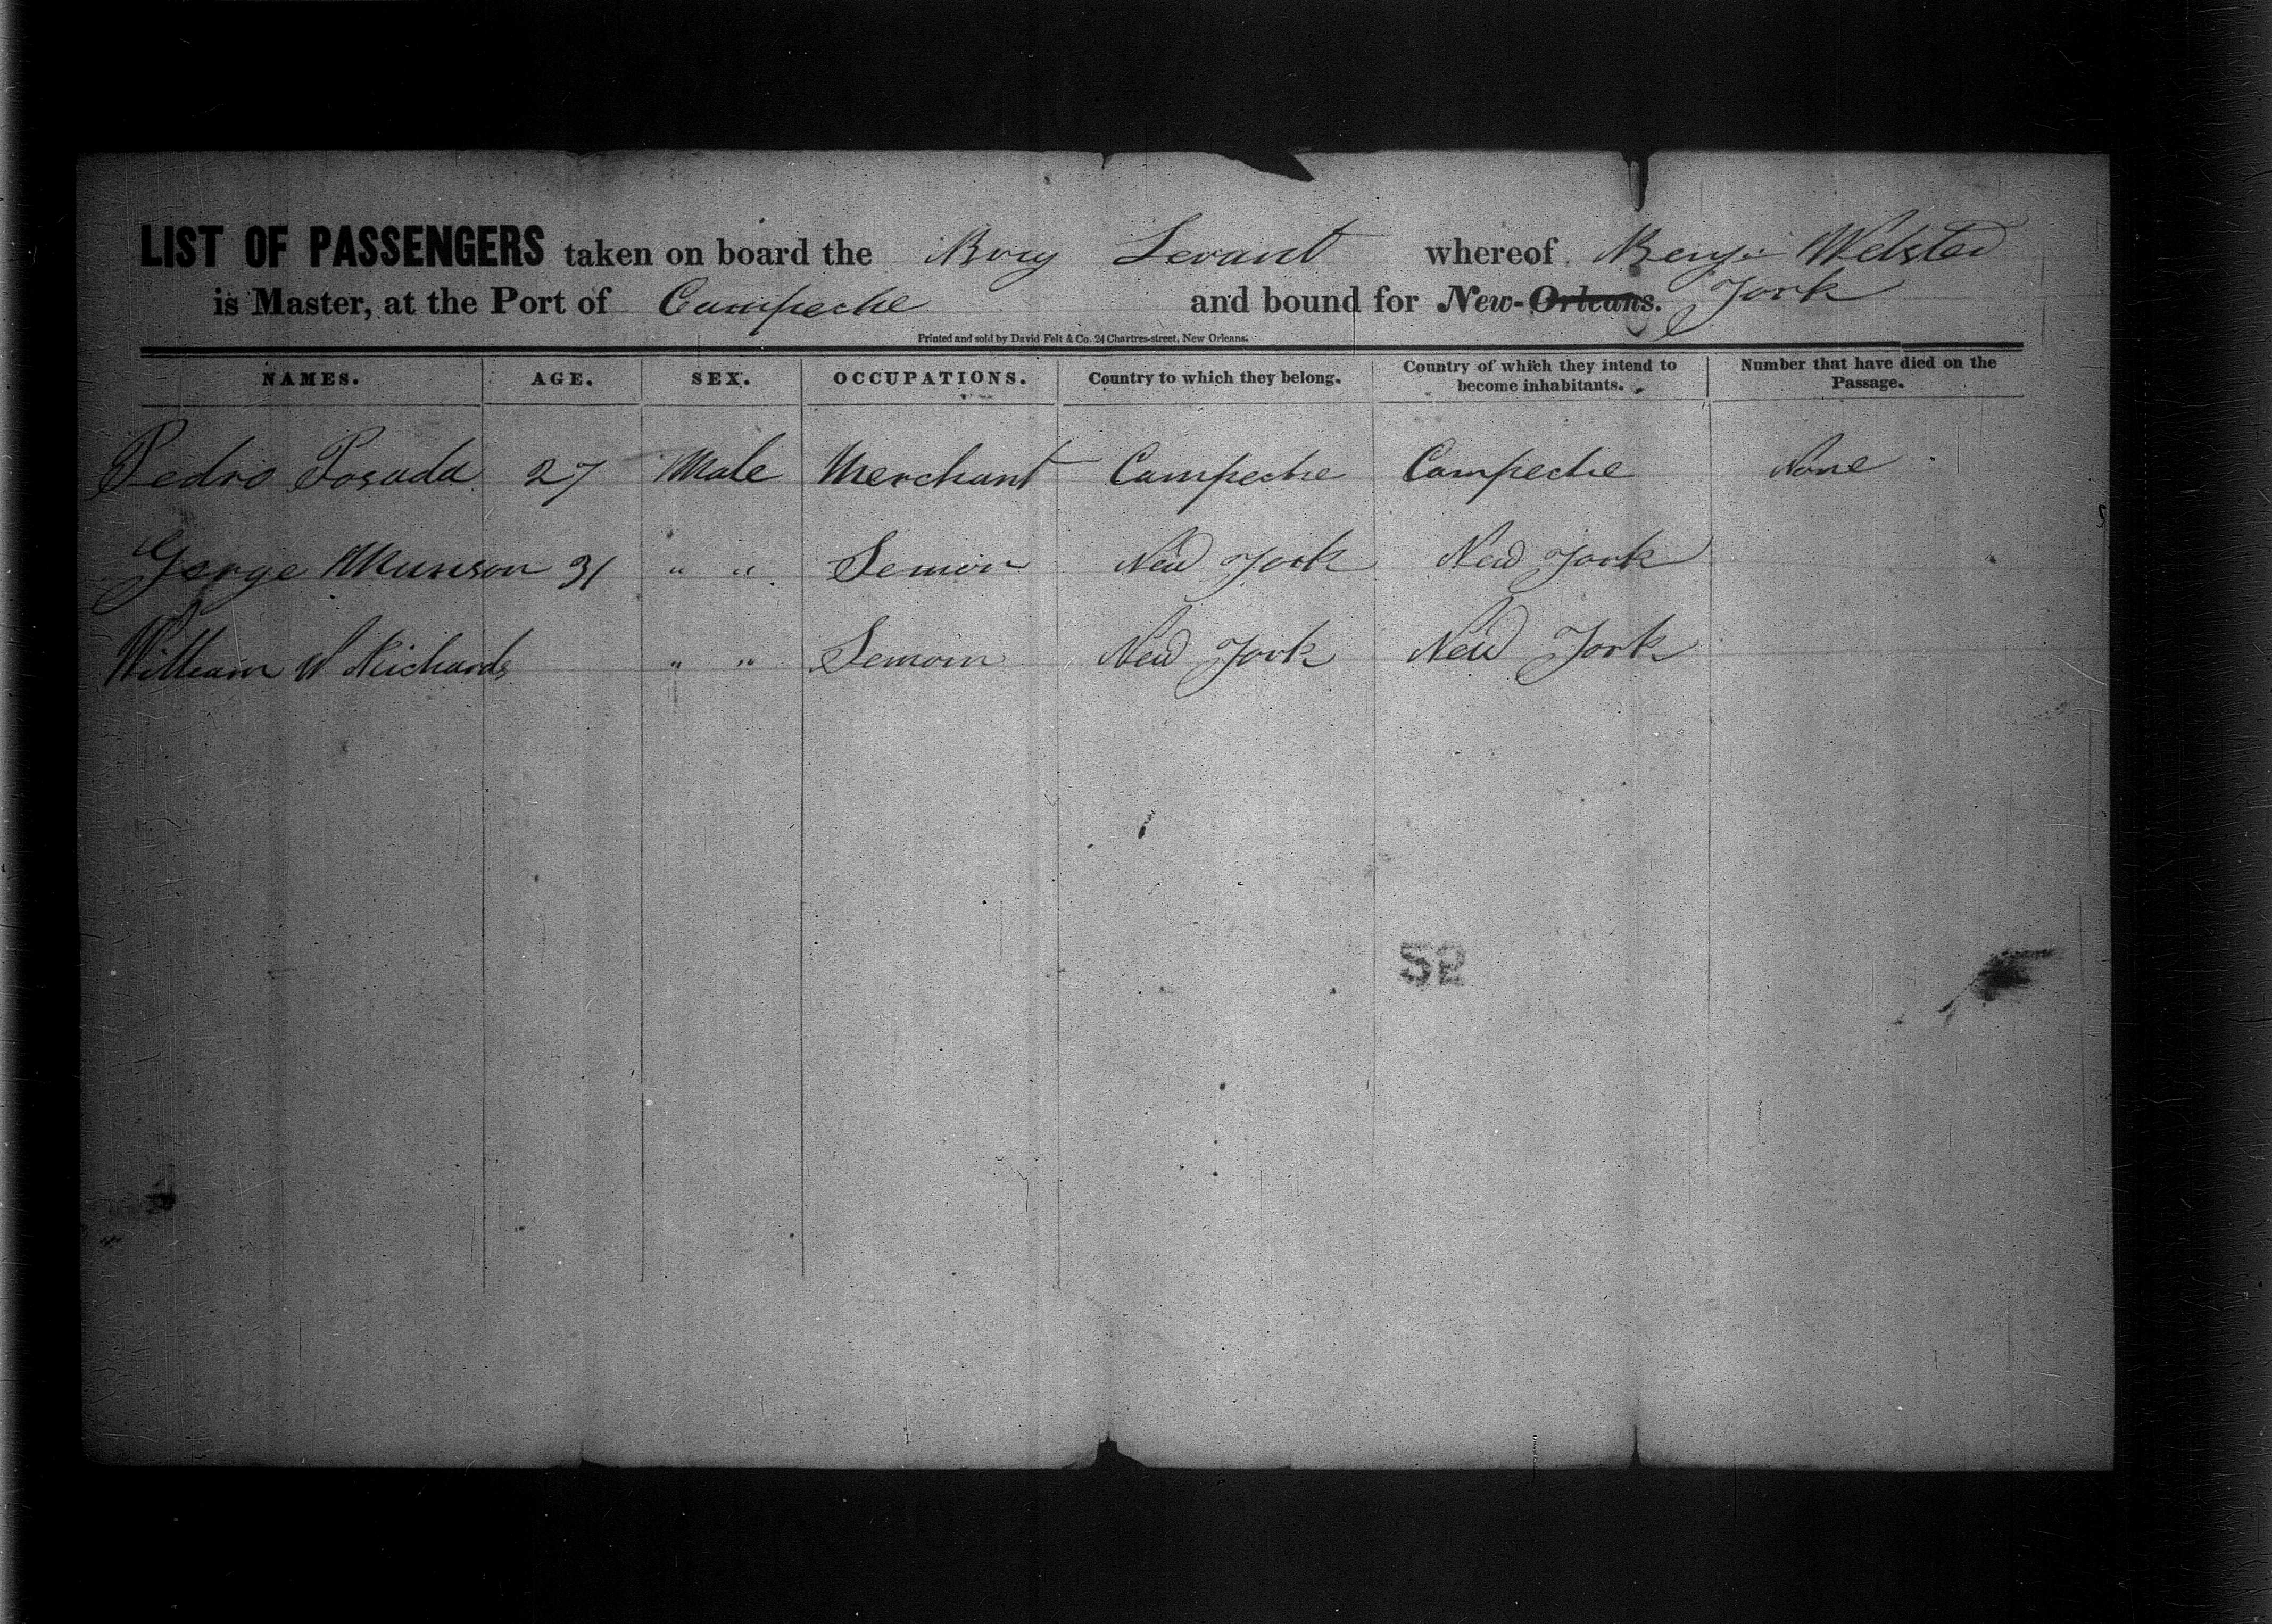 LIST OF PASSENGERS taken on board the Brig Levant whereof Benj. Webster
is Master, at the Port of Campeche and bound for New-Orleans. York
Printed and sold by David Felt & Co. 24 Chartres-street, New Orleans.
NAMES. AGE. SEX. OCCUPATIONS. Country to which they belong. Country of which they intend to become inhabitants. Number that have died on the Passage.
Pedro Posada 27 Male Merchant Campeche Campeche None
George Munson 31 " " Semon New York New York
William W Richards " " Semom New York New York
52